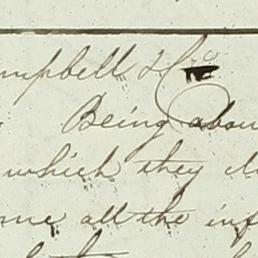 mpbell
Being abou
which they
me all the inf